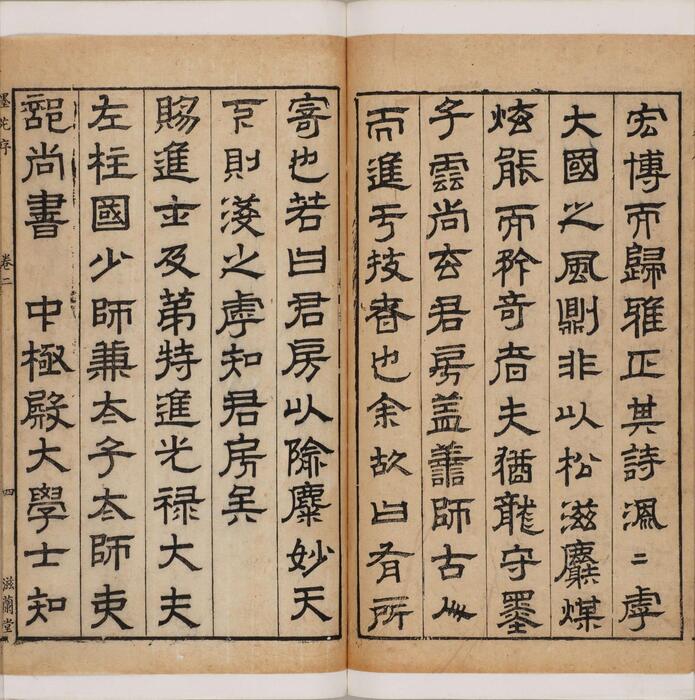 宏博而歸雅正其詩渢二虖
大國之風則非以松滋麝煤
炫能而矜奇者夫猶龍守墨
子雲尚玄君房蓋譱師古人
而進于技者也余故曰有所
寄也若曰君房以隃麋妙天
下則淺之虖知君房矣
賜進士及第特進光祿大夫
左柱國少師兼太子太師吏
部尚書 中極殿大學士知
墨苑序 卷二 四 滋蘭堂